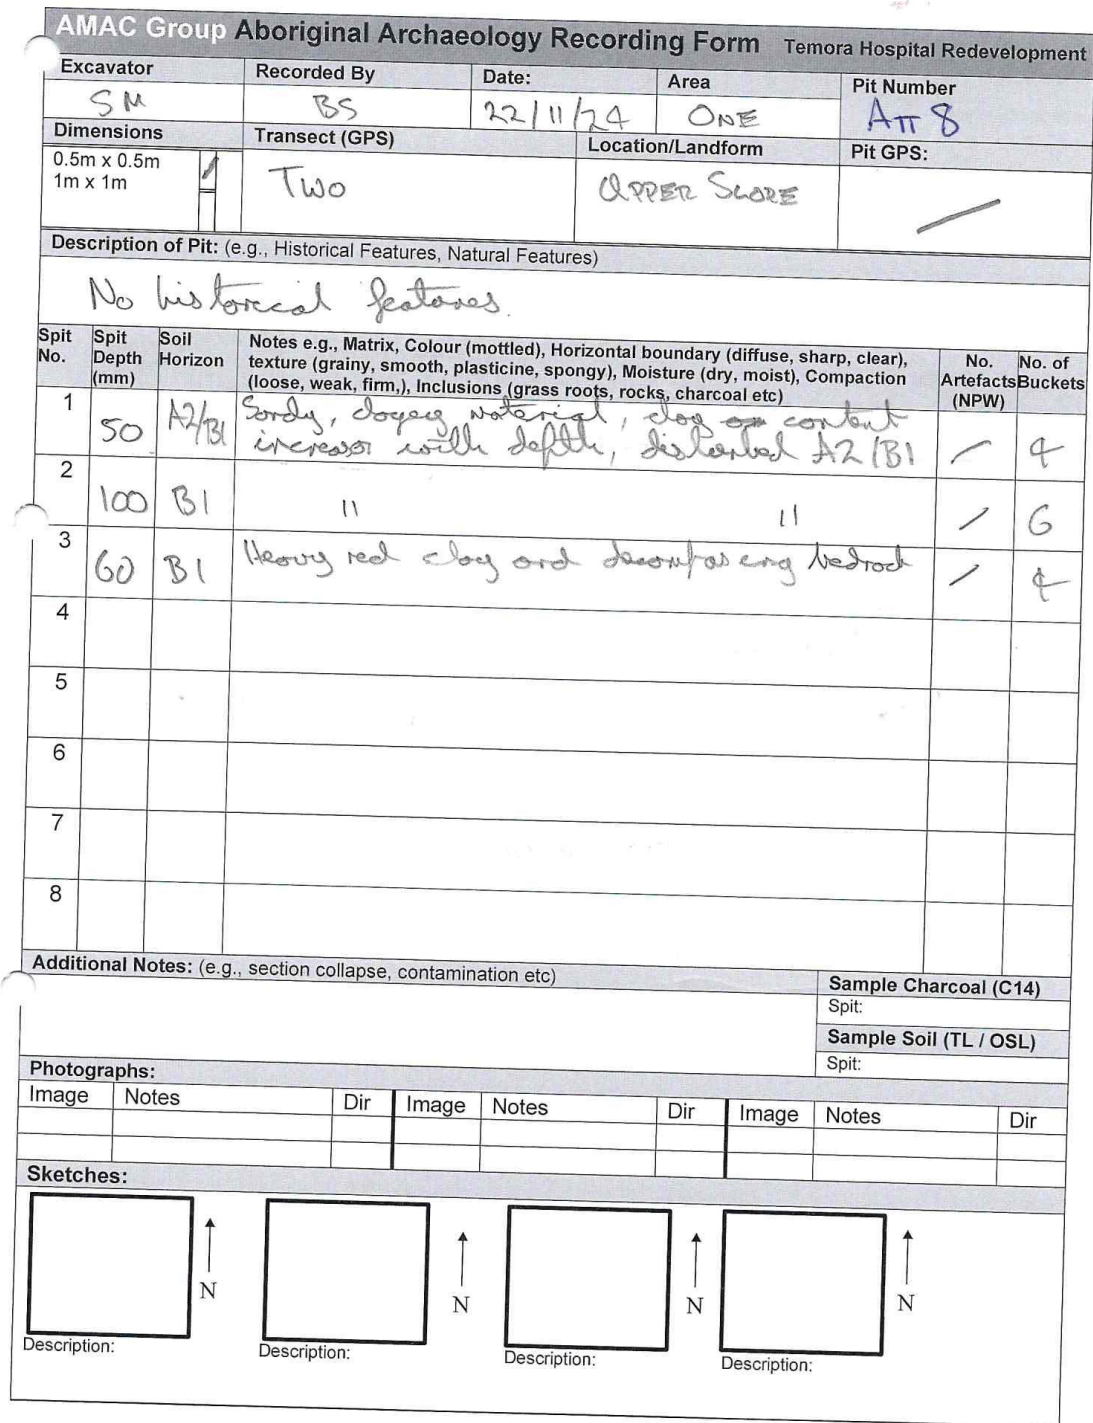 AMAC Group Aboriginal Archaeology Recording Form Temora Hospital Redevelopment
Excavator Recorded By Date: Area Pit Number
SM BS 22/11/24 ONE ATT 8
Dimensions Transect (GPS) Location/Landform Pit GPS:
0.5m x 0.5m /
1m x 1m
TWO UPPER SLOPE /
Description of Pit: (e.g., Historical Features, Natural Features)
No historical features.
Spit No. Spit Depth (mm) Soil Horizon Notes e.g., Matrix, Colour (mottled), Horizontal boundary (diffuse, sharp, clear), No. Artefacts (NPW) No. of Buckets
texture (grainy, smooth, plasticine, spongy), Moisture (dry, moist), Compaction
(loose, weak, firm,), Inclusions (grass roots, rocks, charcoal etc)
1 50 A2/B1 Sandy, clayey material, clay content
increases with depth, disturbed A2/B1 / 4
2 100 B1 " " / 6
3 60 B1 Heavy red clay and decomposing bedrock / 4
4
5
6
7
8
Additional Notes: (e.g., section collapse, contamination etc)
Sample Charcoal (C14)
Spit:
Sample Soil (TL / OSL)
Spit:
Photographs:
Image Notes Dir Image Notes Dir Image Notes Dir
Sketches:
N N N N
Description: Description: Description: Description: